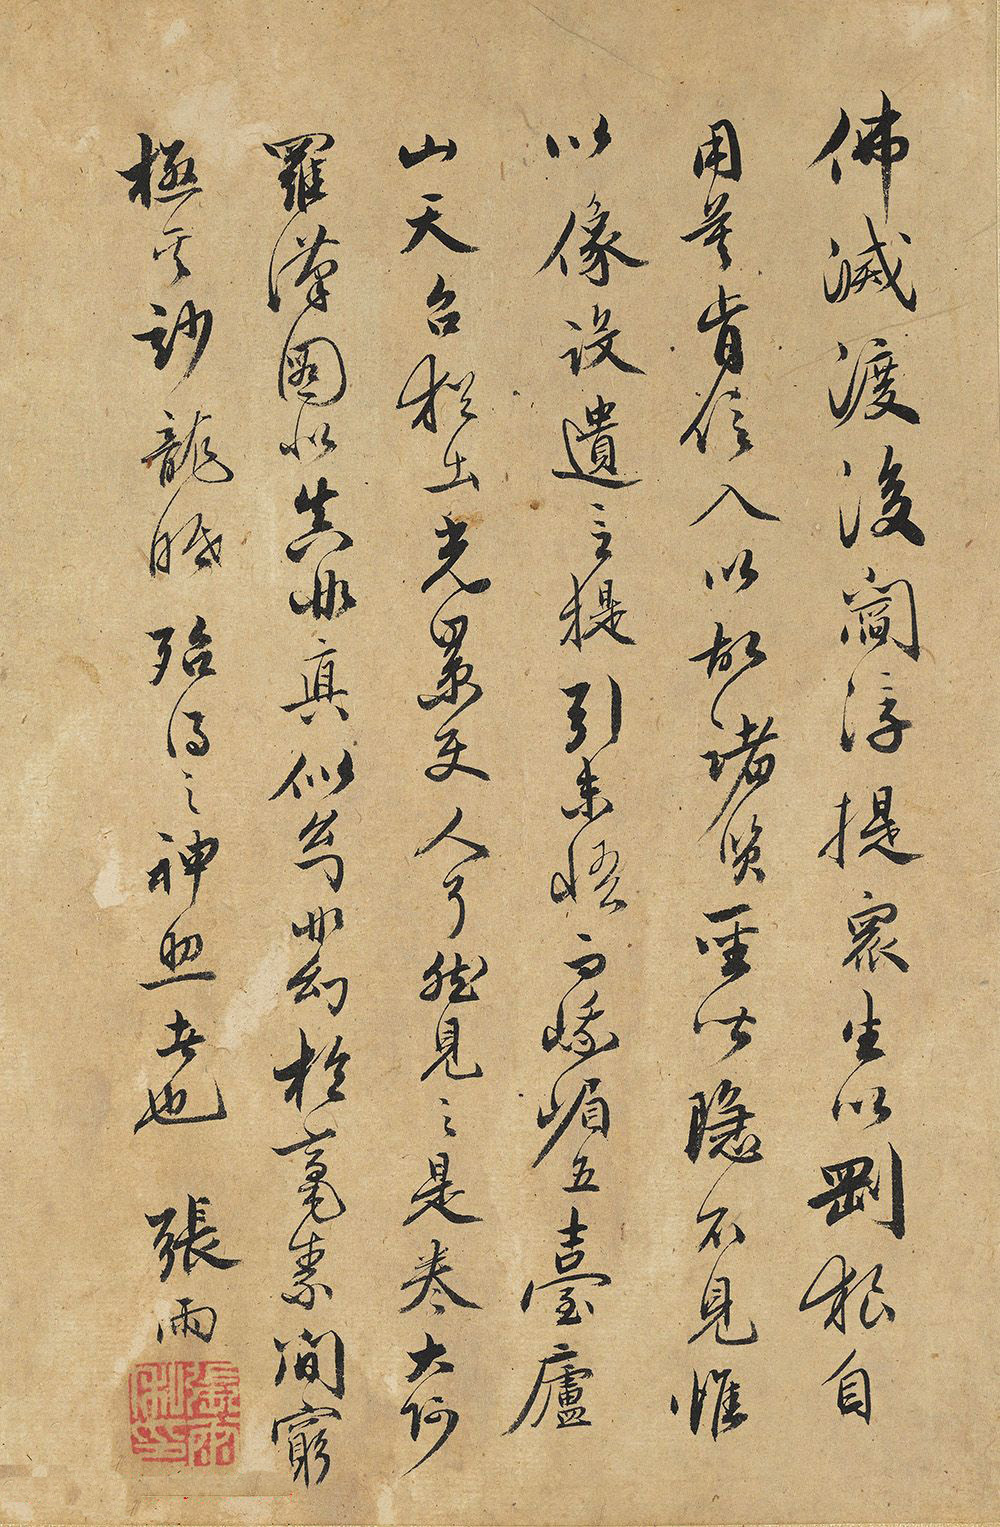 佛滅渡後閻浮提衆生以剛狠自
用莫肯信入以故諸賢聖皆隱不見惟
以像設遺言提引未悟而峨嵋五臺廬
山天台猶出光景使人了然見之是卷大阿
羅漢圖似真非真似幻非幻於毫素間窮
極其妙龍眠殆得之神照者也 張雨
張雨私印